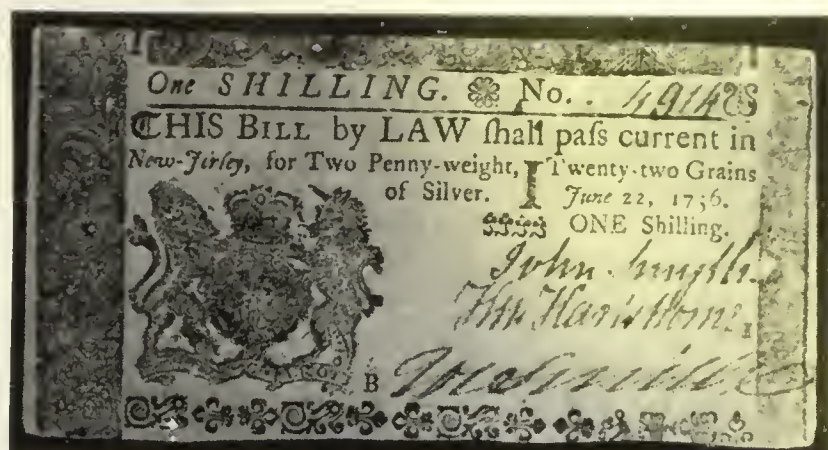 One SHILLING. No. . 4914
THIS BILL by LAW ſhall paſs current in
New-Jerſey, for Two Penny-weight, Twenty-two Grains
of Silver. I June 22, 1756.
ONE Shilling.
John Smyth.
B